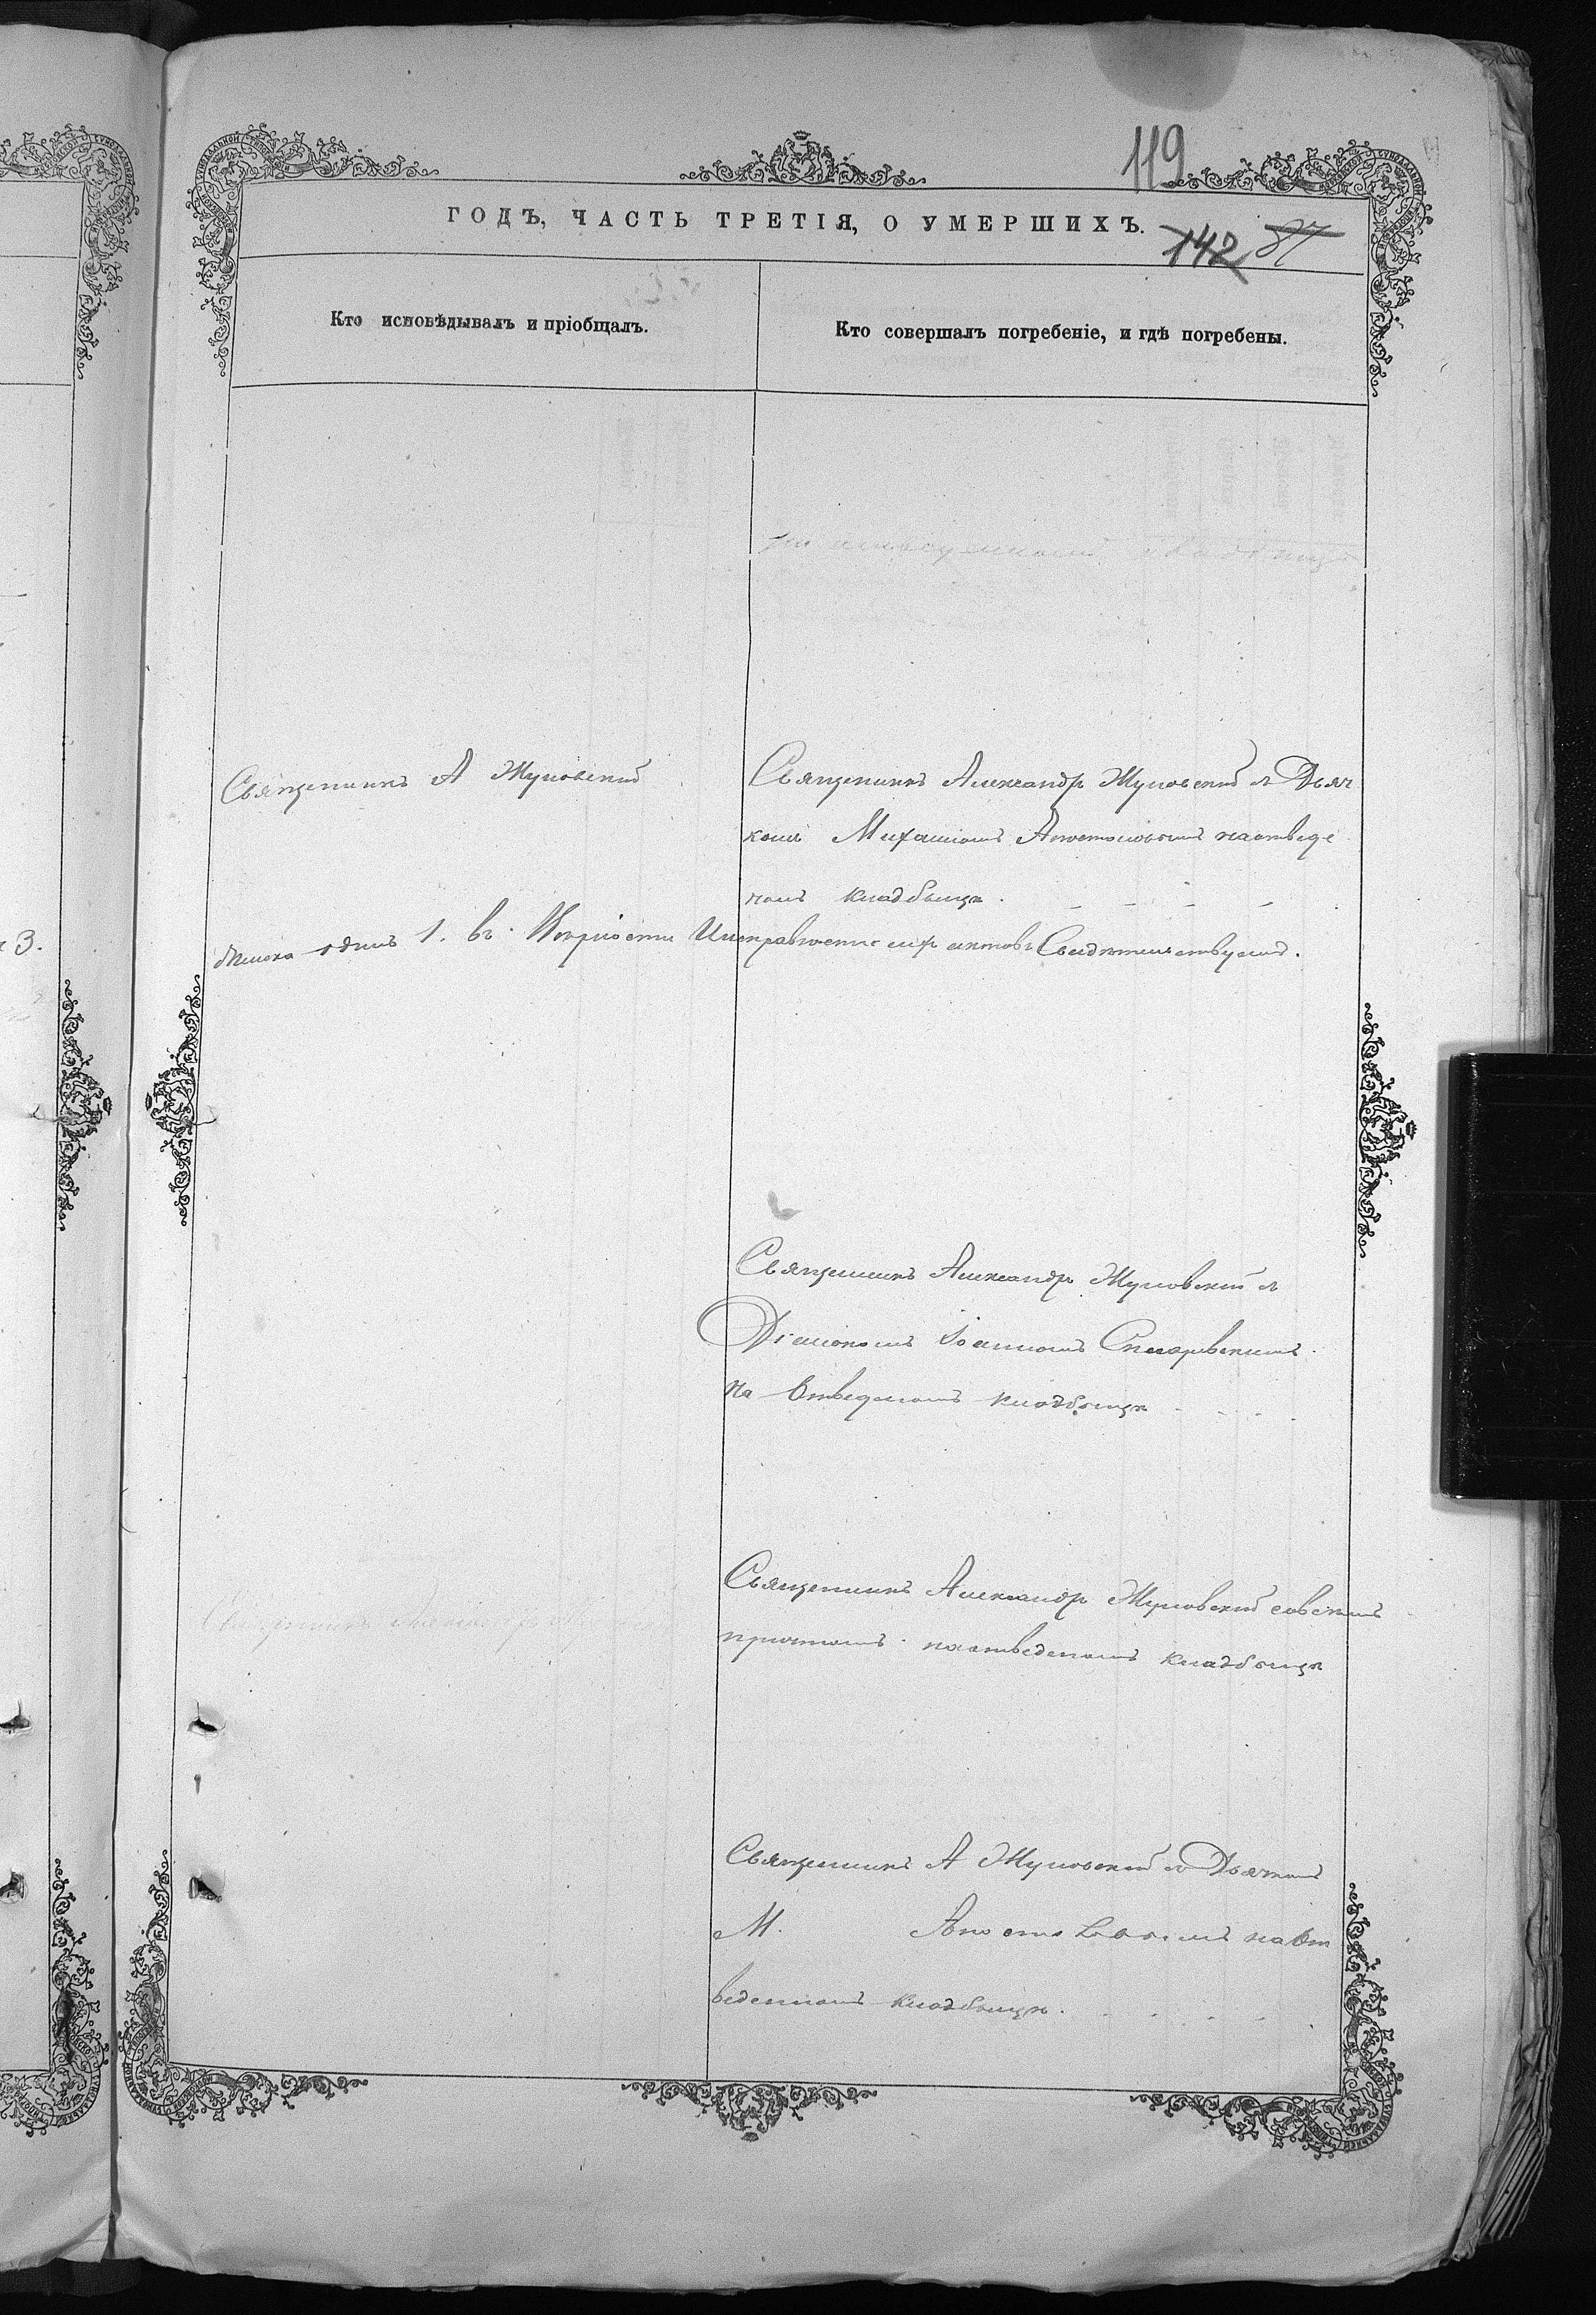 119
ГОДЪ, ЧАСТЬ ТРЕТІЯ, О УМЕРШИХЪ.
142 87
Кто исповѣдывалъ и пріобщалъ.
Кто совершалъ погребеніе, и гдѣ погребены.
Священникъ А Жуковскій
Священникъ Александръ Жуковскій съ Дьяч
комъ Михаиломъ Апостоловымъ наотведе
номъ кладбищѣ.
3.
одинъ 1. въ вѣрности актовъ Свидѣтельствуемъ.
Священникъ Александръ Жуковскій съ
Діакономъ Іоанномъ
на Отведеномъ кладбищѣ
Священникъ Александръ Жуковскій совсемъ
причтомъ наотведеномъ кладбищѣ
Священникъ А Жуковскій съ Дьячкомъ
М. Апостоловымъ наОт
веденномъ кладбищѣ.